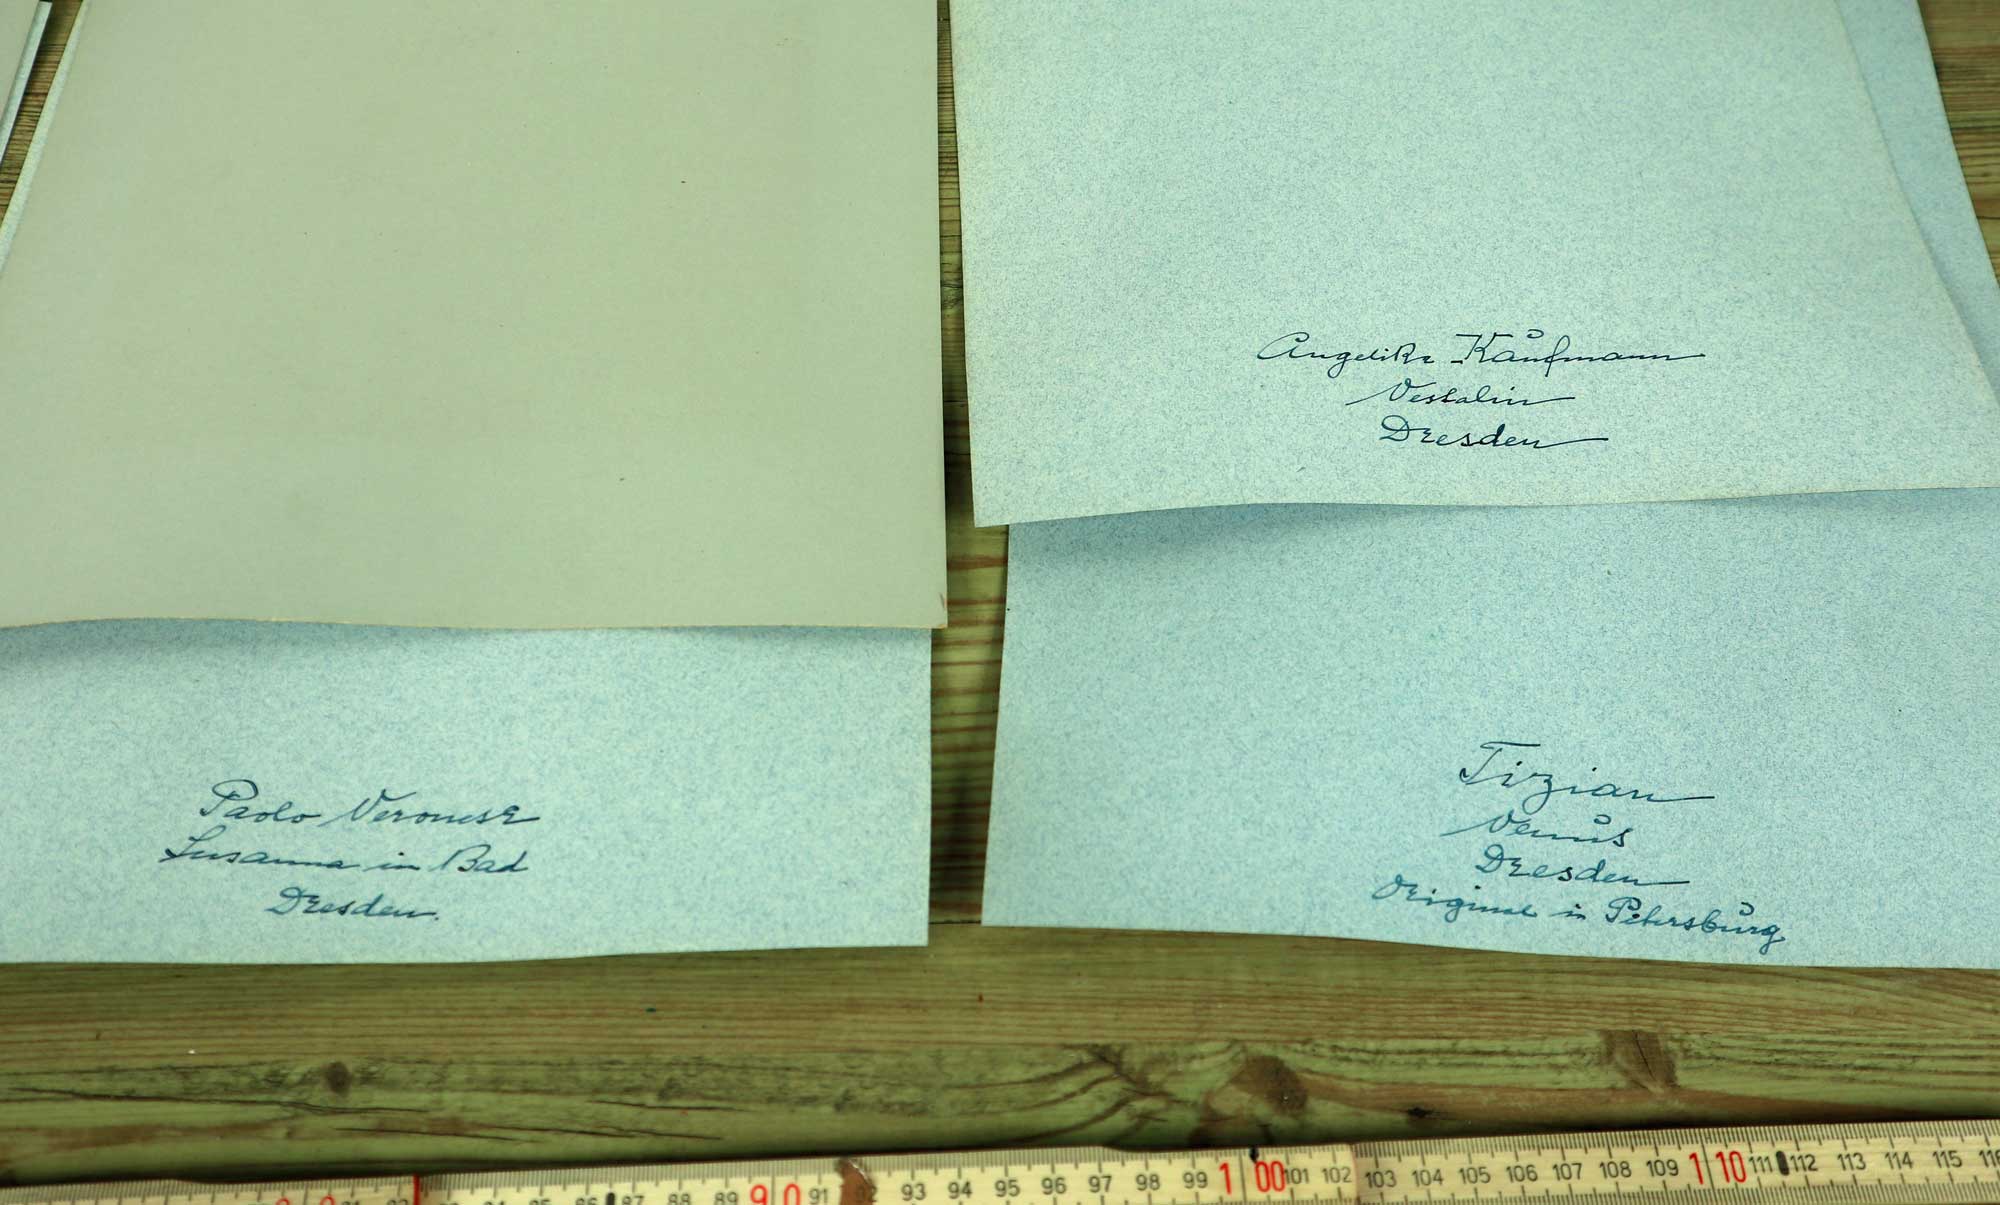 Angelika Kaufmann
Vestalin
Dresden
Paolo Veronese
Susanna in Bad
Dresden.
Tizian
Venus
Dresden
Original in Petersburg
87 88 89 90 91 92 93 94 95 96 97 98 99 100 101 102 103 104 105 106 107 108 109 110 111 112 113 114 115 116